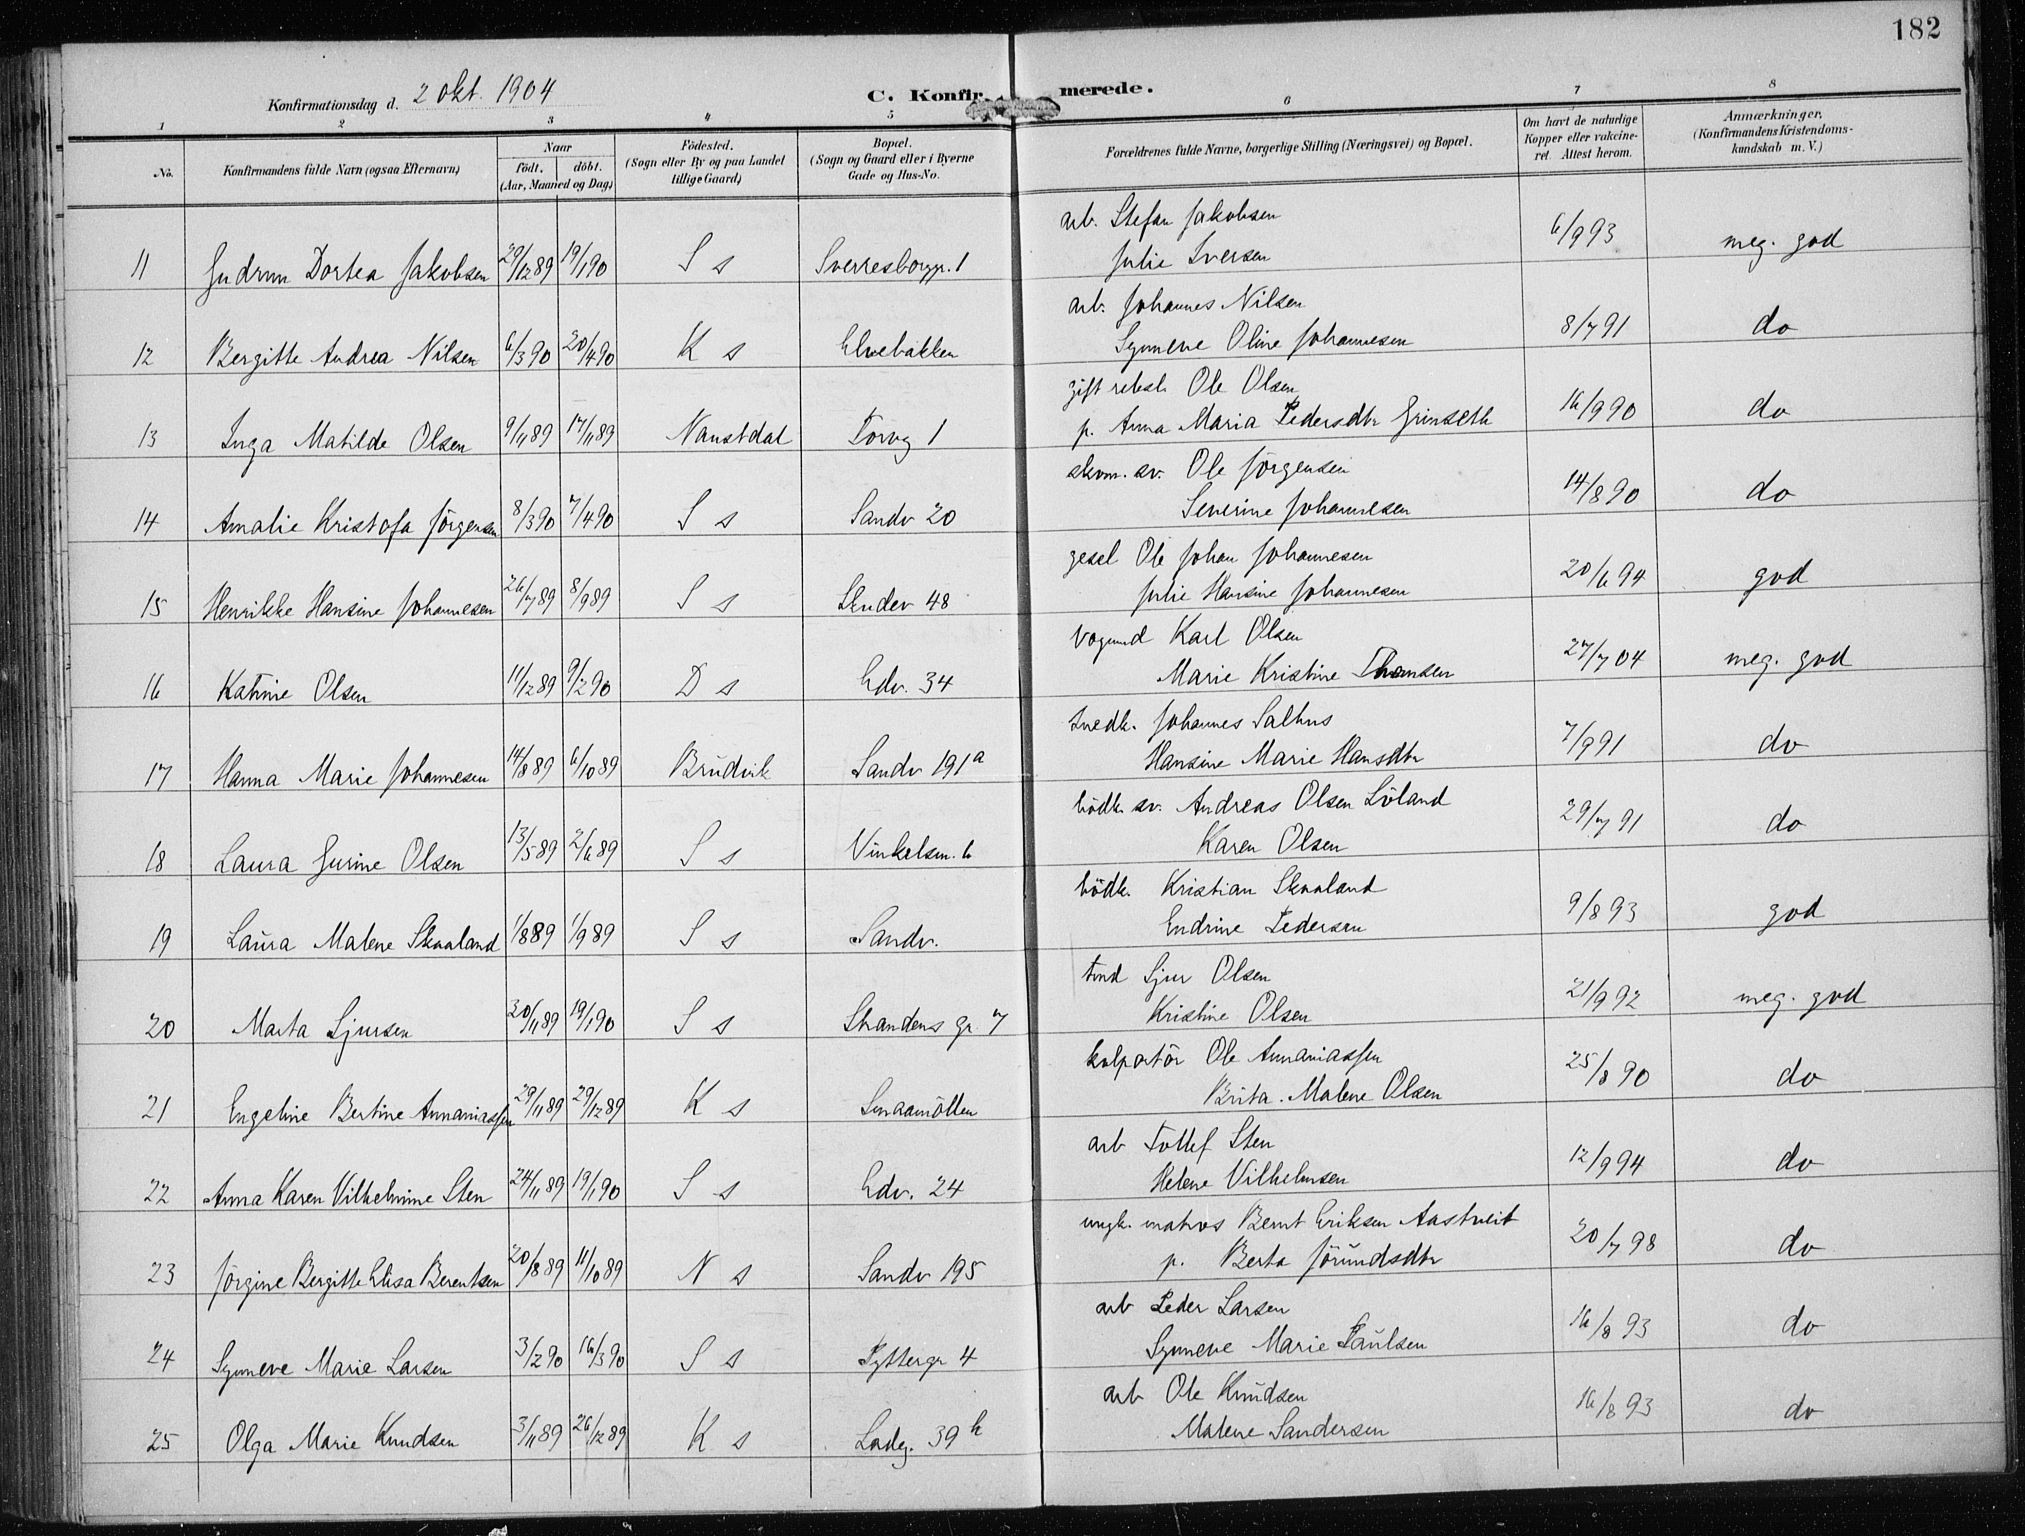 182
Konfirmationsdag d. 2 okt. 1904
C. Konfirmerede.
1 2 3 4 5 6 7 8
No. Konfirmandens fulde Navn (ogsaa Efternavn) Naar födt. döbt. (Aar, Maaned og Dag) Födested. (Sogn eller By og paa Landet tillige Gaard) Bopæl. (Sogn og Gaard eller i Byerne Gade og Hus-No. Forældrenes fulde Navne, borgerlige Stilling (Næringsvei) og Bopæl. Om havt de naturlige Kopper eller vakcineret. Attest herom. Anmærkninger. (Konfirmandens Kristendomskundskab m. V.)
arb. Stefan Jakobsen
11 Gudrun Dortea Jakobsen 29/12 89 19/1 90 S s Sverresborggt. 1 Julie Iversen 6/9 93 meg. god
arb. Johannes Nilsen
12 Bergitte Andrea Nilsen 6/3 90 20/4 90 K s Elvebakken Synneve Oline Johannesen 8/7 91 do
gift rebsl. Ole Olsen
13 Inga Matilde Olsen 9/11 89 17/11 89 Naustdal Torvg 1 p. Anna Maria Pedersdtr Grimseth 16/9 90 do
skom. sv. Ole Jörgensen
14 Amalie Kristofa Jörgensen 8/3 90 7/4 90 S s Sandv 20 Severine Johannesen 14/8 90 do
gesel Ole Johan Johannesen
15 Henrikke Hansine Johannesen 26/7 89 8/9 89 S s Skudev 48 Julie Hansine Johannesen 20/6 94 god
vognmd Karl Olsen
16 Katrine Olsen 11/12 89 9/2 90 D s Edv. 34 Marie Kristine Thomsen 27/7 04 meg. god
snedk. Johannes Salhus
17 Hanna Marie Johannesen 14/8 89 6/10 89 Brudvik Sandv 191a Hansine Marie Hansdtr 7/9 91 do
bödk. sv. Andreas Olsen Löland
18 Laura Gurine Olsen 13/5 89 2/6 89 S s Vinkelsm. 6 Karen Olsen 29/7 91 do
bödk. Kristian Skaaland
19 Laura Malene Skaaland 1/8 89 1/9 89 S s Sandv. Endrine Pedersen 9/8 93 god
Sjur Olsen
20 Marta Sjursen 30/11 89 19/1 90 S s Strandens gr. 7 Kristine Olsen 21/9 92 meg. god
kolportör Ole Annaniassen
21 Engeline Bertine Annaniassen 29/11 89 29/12 89 K s Smaamöllen Brita Malene Olsen 25/8 90 do
arb Tollef Sten
22 Anna Karen Vilhelmine Sten 24/11 89 19/1 90 S s Edv. 24 Helene Vilhelmsen 12/9 94 do
ungk. matros Bernt Eriksen Aastveit
23 Jörgine Bergitte Elisa Berentsen 20/8 89 11/10 89 N s Sandv 195 p. Berta Jörundsdtr 20/7 98 do
arb Peder Larsen
24 Synneve Marie Larsen 3/2 90 16/3 90 S s Pyttergr 4 Synneve Marie Paulsen 16/8 93 do
arb Ole Knudsen
25 Olga Marie Knudsen 3/11 89 26/12 89 K s Ladeg. 39 b Malene Sandersen 16/8 93 do